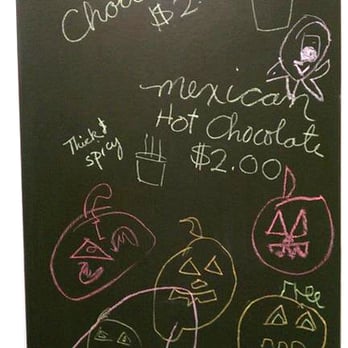 $2
mexican
Hot Chocolate
$2.00
Thick &
spicy